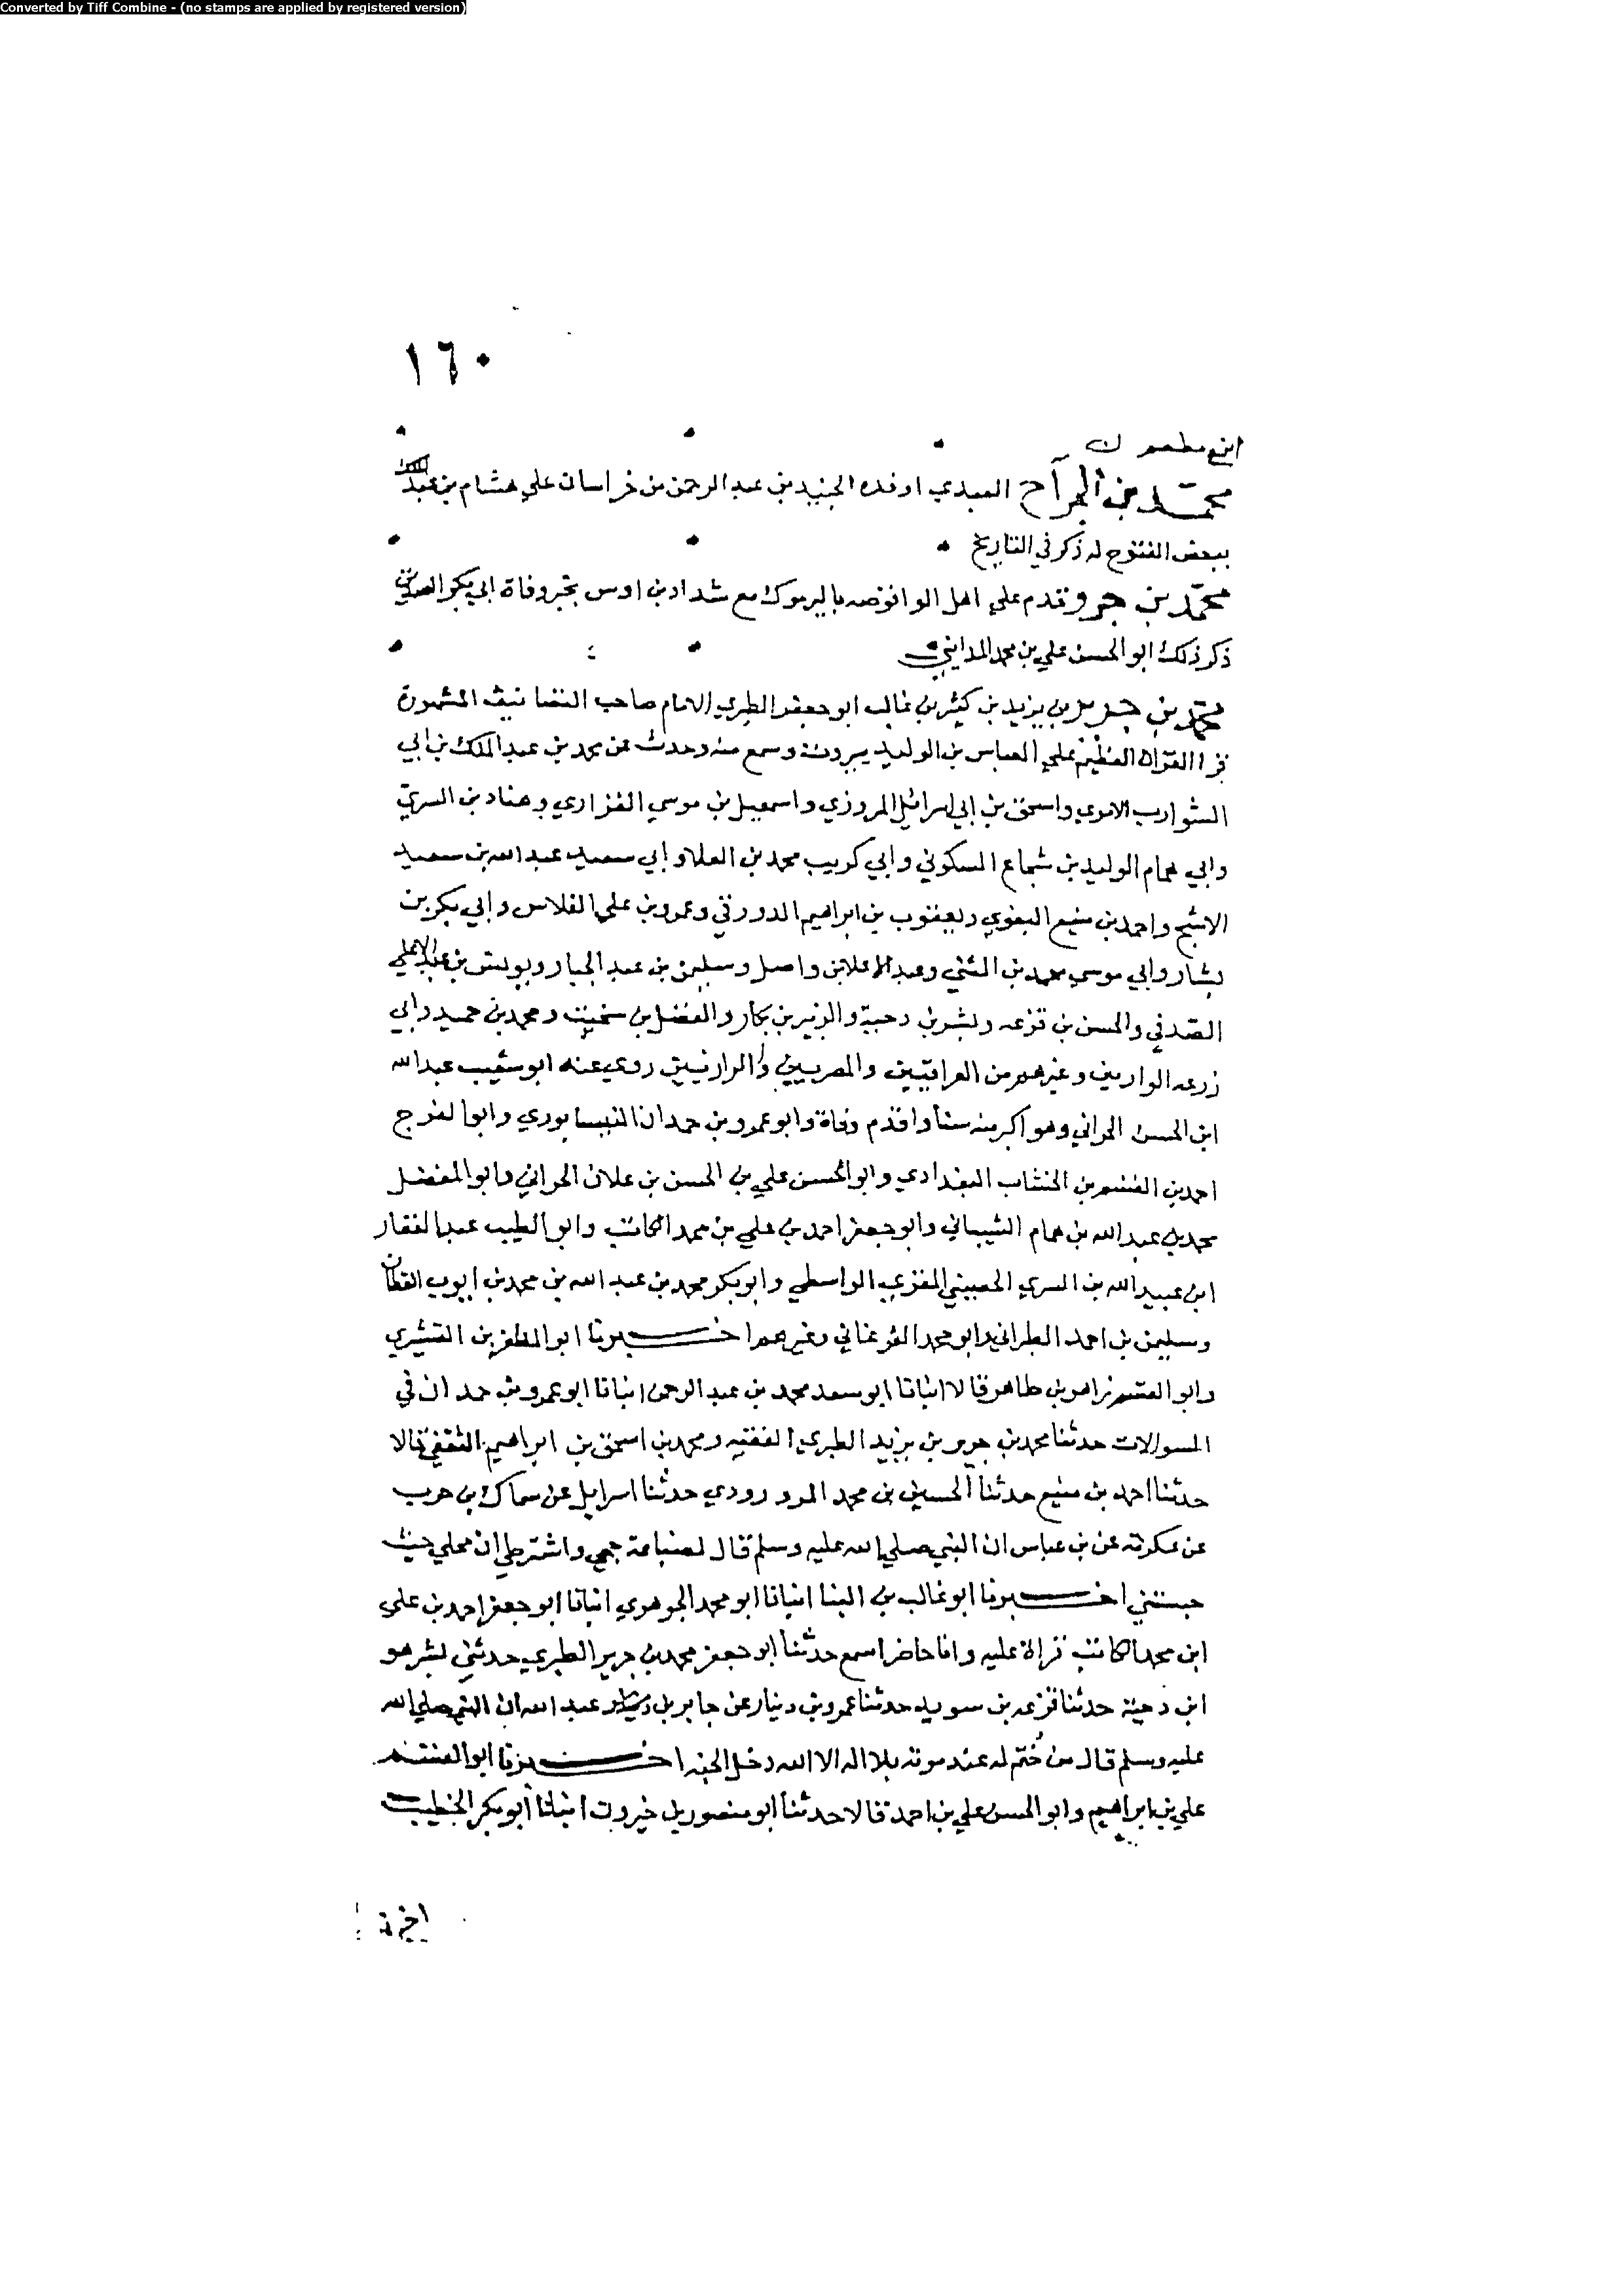 Converted by Tiff Combine - (no stamps are applied by registered version)
١٦٠
ابن مطعم
محمد بن الجراح العبدي اوفده الجنيد بن عبد الرحمن من خراسان علي هشام بن عبد الملك
ببعض الفتوح له ذكر في التاريخ
محمد بن جرو قدم علي اهل الواقوصه باليرموك مع شداد بن اوس بخبر وفاة ابي بكر الصديق
ذكر ذلك ابو الحسن علي بن محمد المدايني
محمد بن جرير بن يزيد بن كثير بن غالب ابو جعفر الطبري الامام صاحب التصانيف المشهورة
قرا القران العظيم علي العباس بن الوليد ببيروت وسمع منه وحدث عن محمد بن عبد الملك بن ابي
الشوارب الاموي واسحق بن ابي اسرائيل المروزي واسمعيل بن موسي الفزاري وهناد بن السري
وابي همام الوليد بن شجاع السكوني وابي كريب محمد بن العلا وابي سعيد عبد الله بن سعيد
الاشج واحمد بن منيع البغوي ويعقوب بن ابراهيم الدورقي وعمرو بن علي الفلاس وابي بكر بن
بشار وابي موسي محمد بن المثني وعبد الاعلا بن واصل وسليمن بن عبد الجبار ويونس بن عبد الاعلي
الصدفي والحسن بن قزعه وبشر بن دحية والزبير بن بكار والفضل بن سخيت ومحمد بن حميد وابي
زرعه الرازيين وغيرهم من العراقيين والمصريين والرازيين روي عنه ابو شعيب عبد الله
ابن الحسن الحراني وهو اكبر منه سنا واقدم وفاة وابو عمرو بن حمدان النيسابوري وابو الفرج
احمد بن القسم بن الخشاب البغدادي وابو الحسن علي بن الحسن بن علان الحراني وابو المفضل
محمد بن عبد الله بن همام الشيباني وابو جعفر احمد بن علي بن محمد الكاتب وابو الطيب عبد الغفار
ابن عبيد الله بن السري الحصيني المقري الواسطي وابو بكر محمد بن عبد الله بن محمد بن ايوب القطان
وسليمن بن احمد الطبراني وابو محمد الفرغاني وغيرهم اخبرنا ابو المظفر بن القشيري
وابو القسم زاهر بن طاهر قالا انبانا ابو سعد محمد بن عبد الرحمن انبانا ابو عمرو بن حمدان في
السوالات حدثنا محمد بن جرير بن يزيد الطبري الفقيه ومحمد بن اسحق بن ابراهيم الثقفي قالا
حدثنا احمد بن منيع حدثنا الحسين بن محمد المرورودي حدثنا اسرايل عن سماك بن حرب
عن عكرمة عن بن عباس ان النبي صلي الله عليه وسلم قال لضباعة حجي واشترطي ان محلي حيث
حبستني اخبرنا ابو غالب بن البنا انبانا ابو محمد الجوهري انبانا ابو جعفر احمد بن علي
ابن محمد الكاتب قراة عليه وانا حاضر اسمع حدثنا ابو جعفر محمد بن جرير الطبري حدثني بشر هو
ابن دحية حدثنا قزعه بن سويد حدثنا عمرو بن دينار عن جابر بن عبد الله ان النبي صلي الله
عليه وسلم قال من خُتم له عند موته بلا اله الا الله دخل الجنه اخبرنا ابو القسم
علي بن ابراهيم وابو الحسن علي بن احمد قالا حدثنا ابو منصور بن خيرون انبانا ابو بكر الخطيب